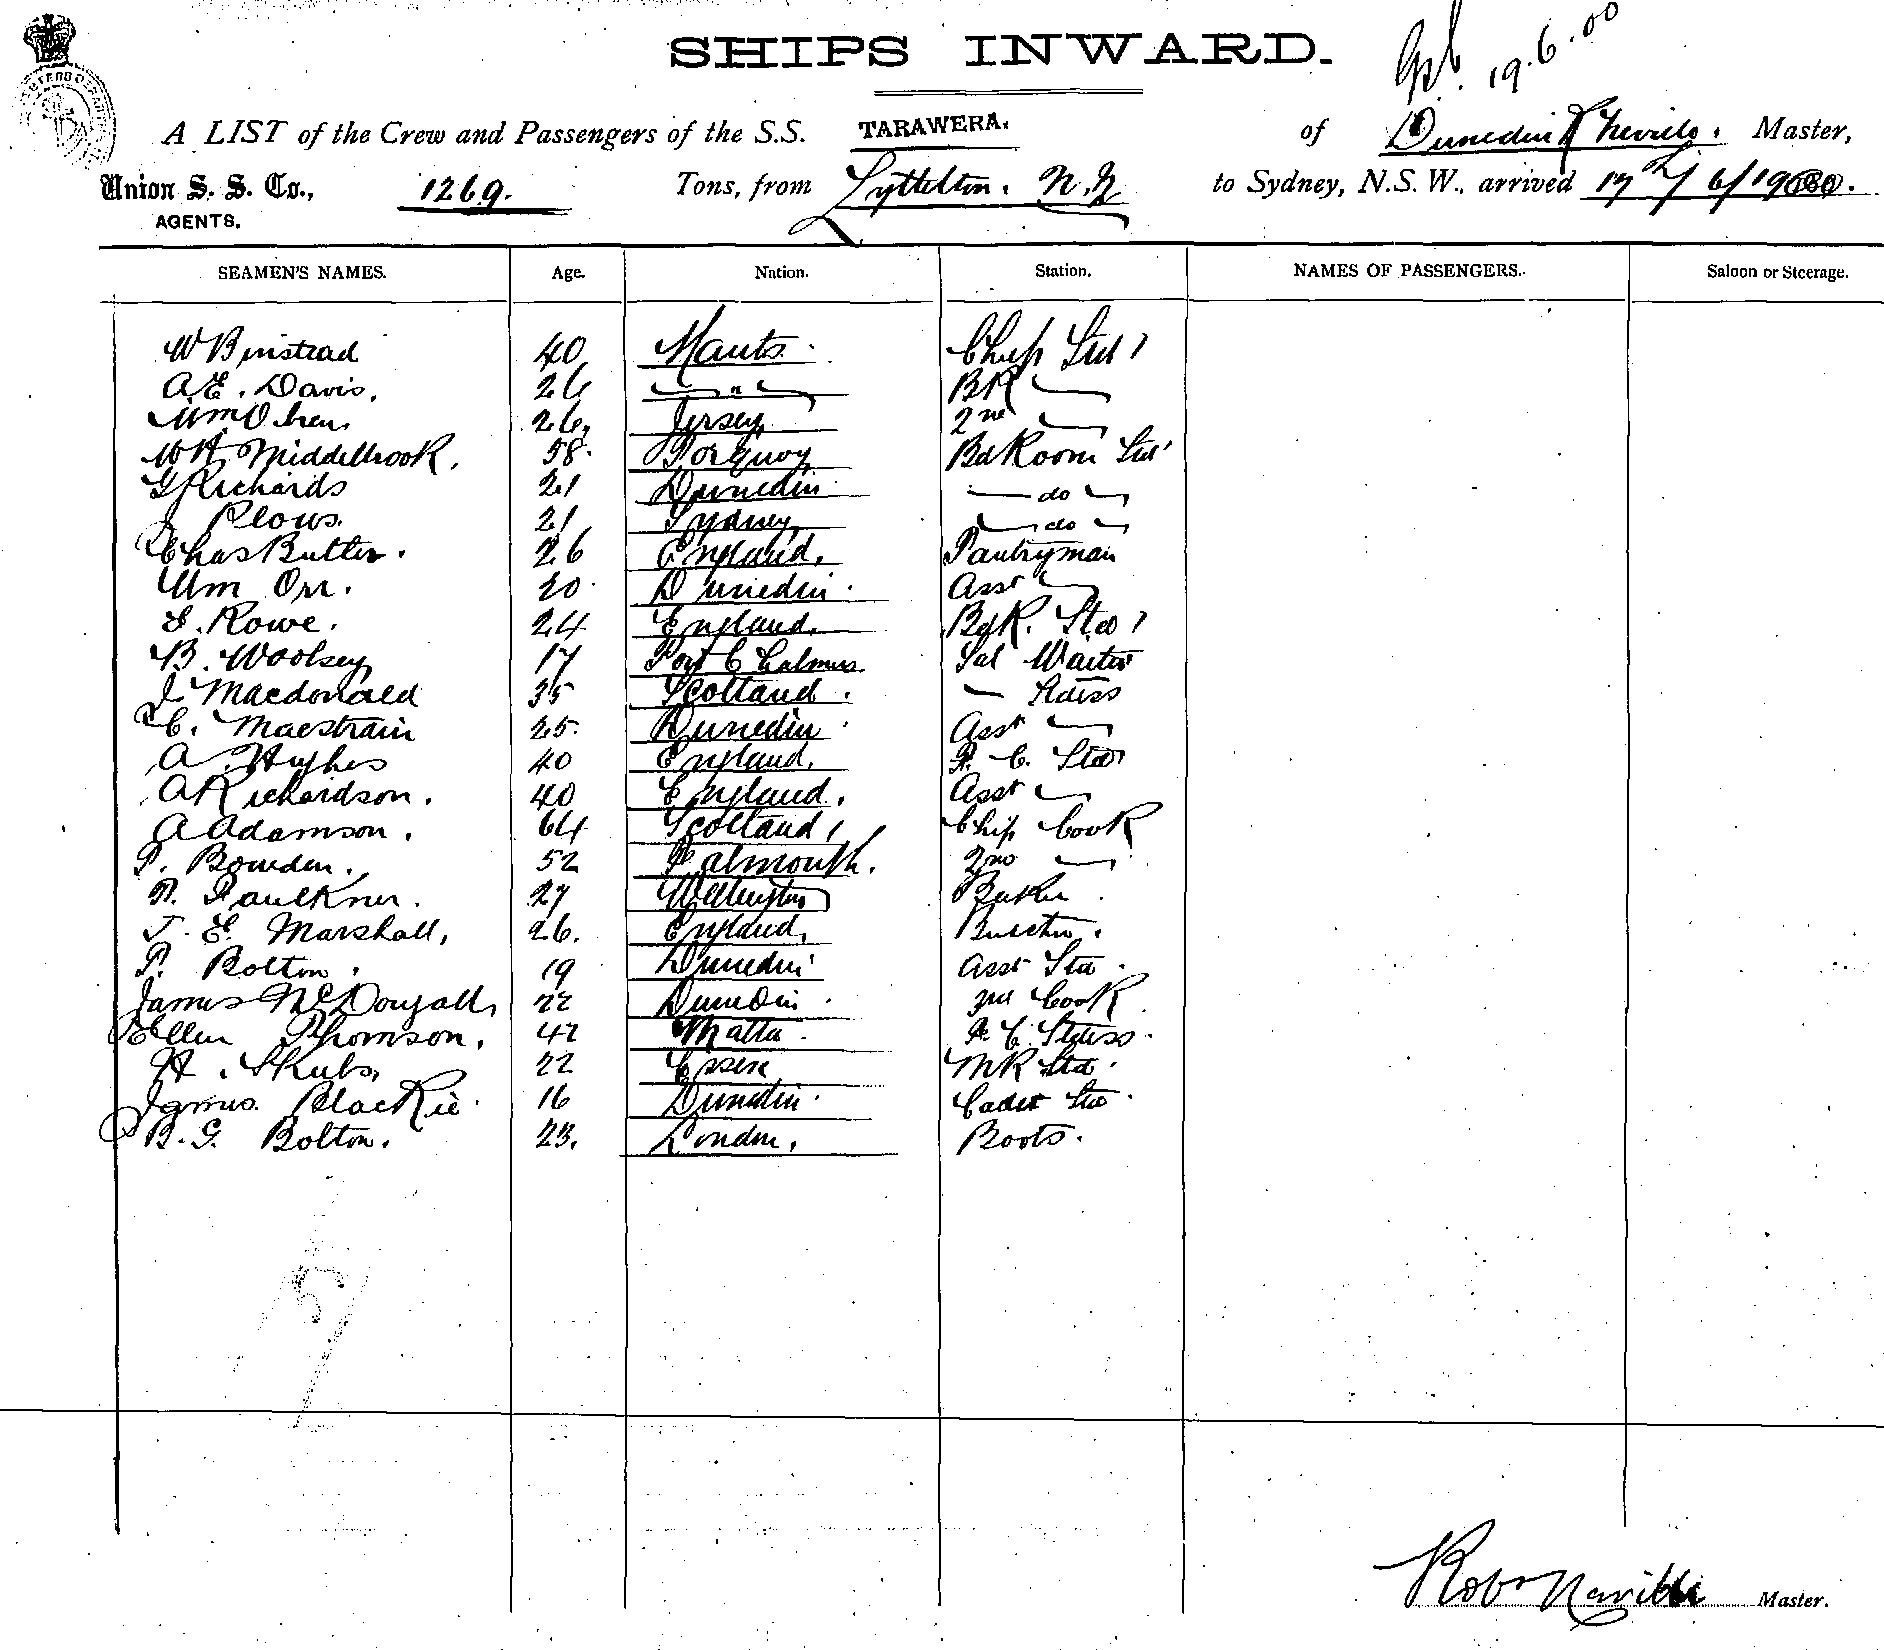 SHIPS INWARD.
19.6.00
A LIST of the Crew and Passengers of the S.S. TARAWERA. of Dunedin Master,
Union S. S. Co., 1269. Tons, from Lyttelton. N.Z to Sydney, N.S.W., arrived 17th/6/1900.
AGENTS.
SEAMEN'S NAMES. Age. Nation. Station. NAMES OF PASSENGERS. Saloon or Steerage.
W Binstead 40 Hants. Chief Std
A.E. Davis. 26 — " — BR —
Wm 26, Jersey 2nd —
WH Middlebrook. 58. Torquay Bd Room Std
G Richards 21 Dunedin — do —
J Plows. 21 Sydney — do —
Chas Butler. 26 England. Pantryman
Wm Orr. 20. Dunedin. Asst —
E. Rowe. 24 England. Bd R. Std
B. Woolsey 17 Port Chalmers Sal Waiter
J. Macdonald 35 Scotland. — Stdess
C. Maestrain 25. Dunedin. Asst —
A Hughes 40 England. F. C. Std
A Richardson. 40 England. Asst —
A Adamson. 64 Scotland, Chief Cook
P. Bowden. 52 Falmouth. 2nd —
R. Faulkner. 27 Wellington Baker.
J. E. Marshall, 26. England. Butcher.
P. Bolton. 19 Dunedin Asst Std.
James McDougall, 22 Dunedin. 3rd Cook
Ellen Thomson. 42 Malta. F. C. Stdess.
H. Skubs, 22 Essex MR Std.
James Blackie. 16 Dunedin. Cadet Std.
B. G. Bolton. 23. London. Boots.
Robt Neville Master.